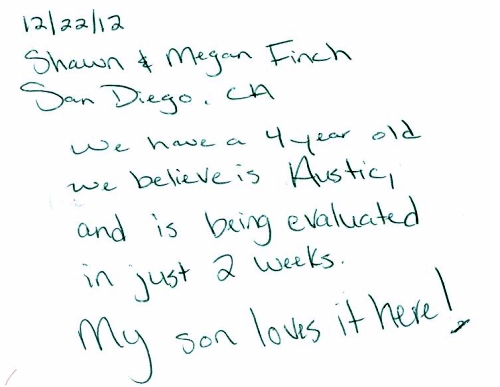 12/22/12
Shawn & Megan Finch
San Diego, CA
We have a 4 year old
we believe is Austic,
and is being evaluated
in just 2 weeks.
My son loves it here!